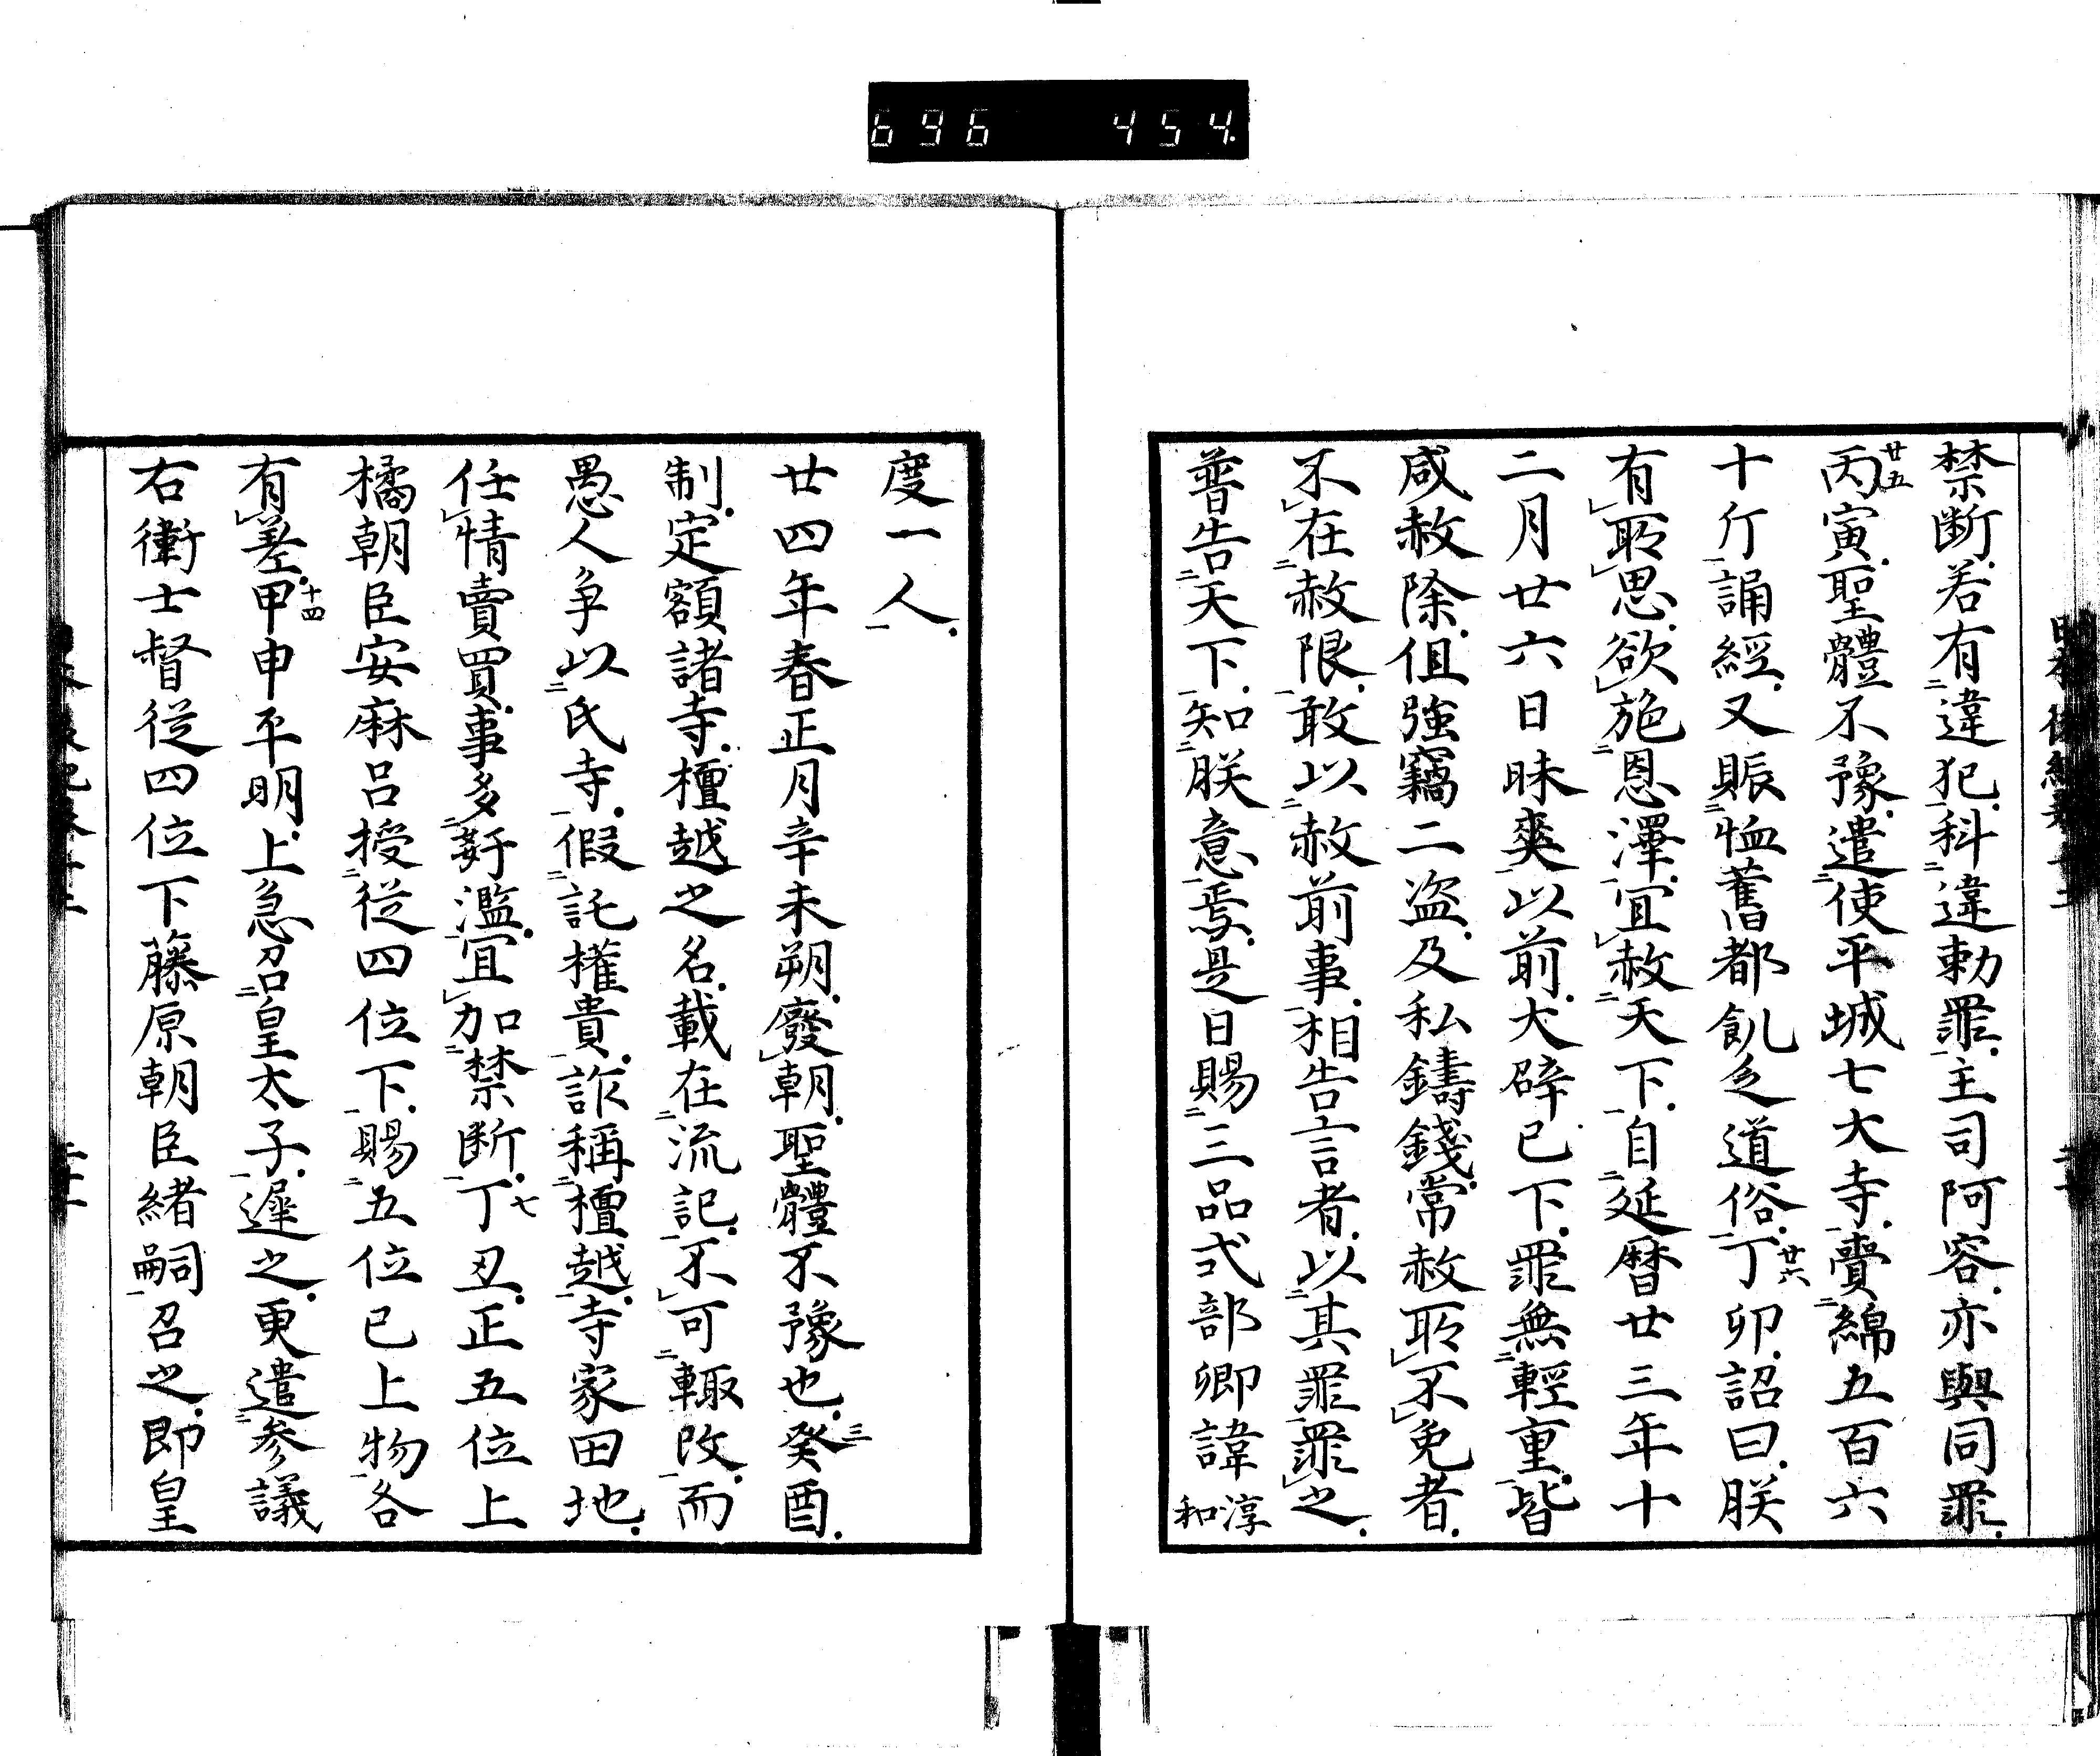 696 454
禁断.若有違犯.科違勅罪.主司阿容.亦與同罪.
丙寅.聖體不豫.遣使平城七大寺.賷綿五百六
廿五
十斤誦經.又賑恤舊都飢乏道俗.丁卯.詔曰.朕
廿六
有所思.欲施恩澤.宜赦天下.自延暦廿三年十
二月廿六日昧爽以前.大辟已下.罪無輕重.皆
咸赦除.但強竊二盗.及私鑄錢.常赦所不免者.
不在赦限.敢以赦前事.相告言者.以其罪罪之.
普告天下.知朕意焉.是日賜三品式部卿諱淳和
度一人.
廿四年春正月辛未朔.廢朝.聖體不豫也.癸酉.
三
制.定額諸寺.檀越之名.載在流記.不可輙改.而
愚人争以氏寺.假託權貴.詐稱檀越.寺家田地.
任情賣買.事多姧濫.宜加禁断.丁丑.正五位上
七
橘朝臣安麻呂授従四位下.賜五位已上物各
有差.甲申平明.上急召皇太子.遲之.更遣参議
十四
右衛士督従四位下藤原朝臣緒嗣召之.即皇